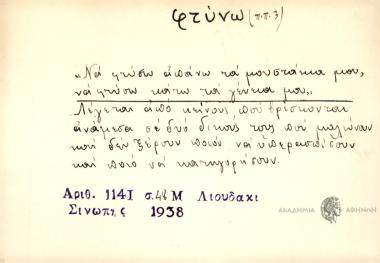 φτύνω (π.π. 3)
«Νά φτύσω ἀπάνω τά μουστάκια μου,
νά φτύσω κάτω τά γένεια μου»
Λέγεται ἀπό κείνους πού βρίσκονται
ἀνάμεσα σέ δυό δικούς τους πού μαλώνουν
καί δέν ξέρουν ποιόν νά ὑπερασπίσουν
καί ποιό νά κατηγορήσουν.
Αριθ. 1141 σ. 48 Μ Λιουδακι
Σινωπης 1938
ΑΚΑΔΗΜΙΑ ΑΘΗΝΩΝ